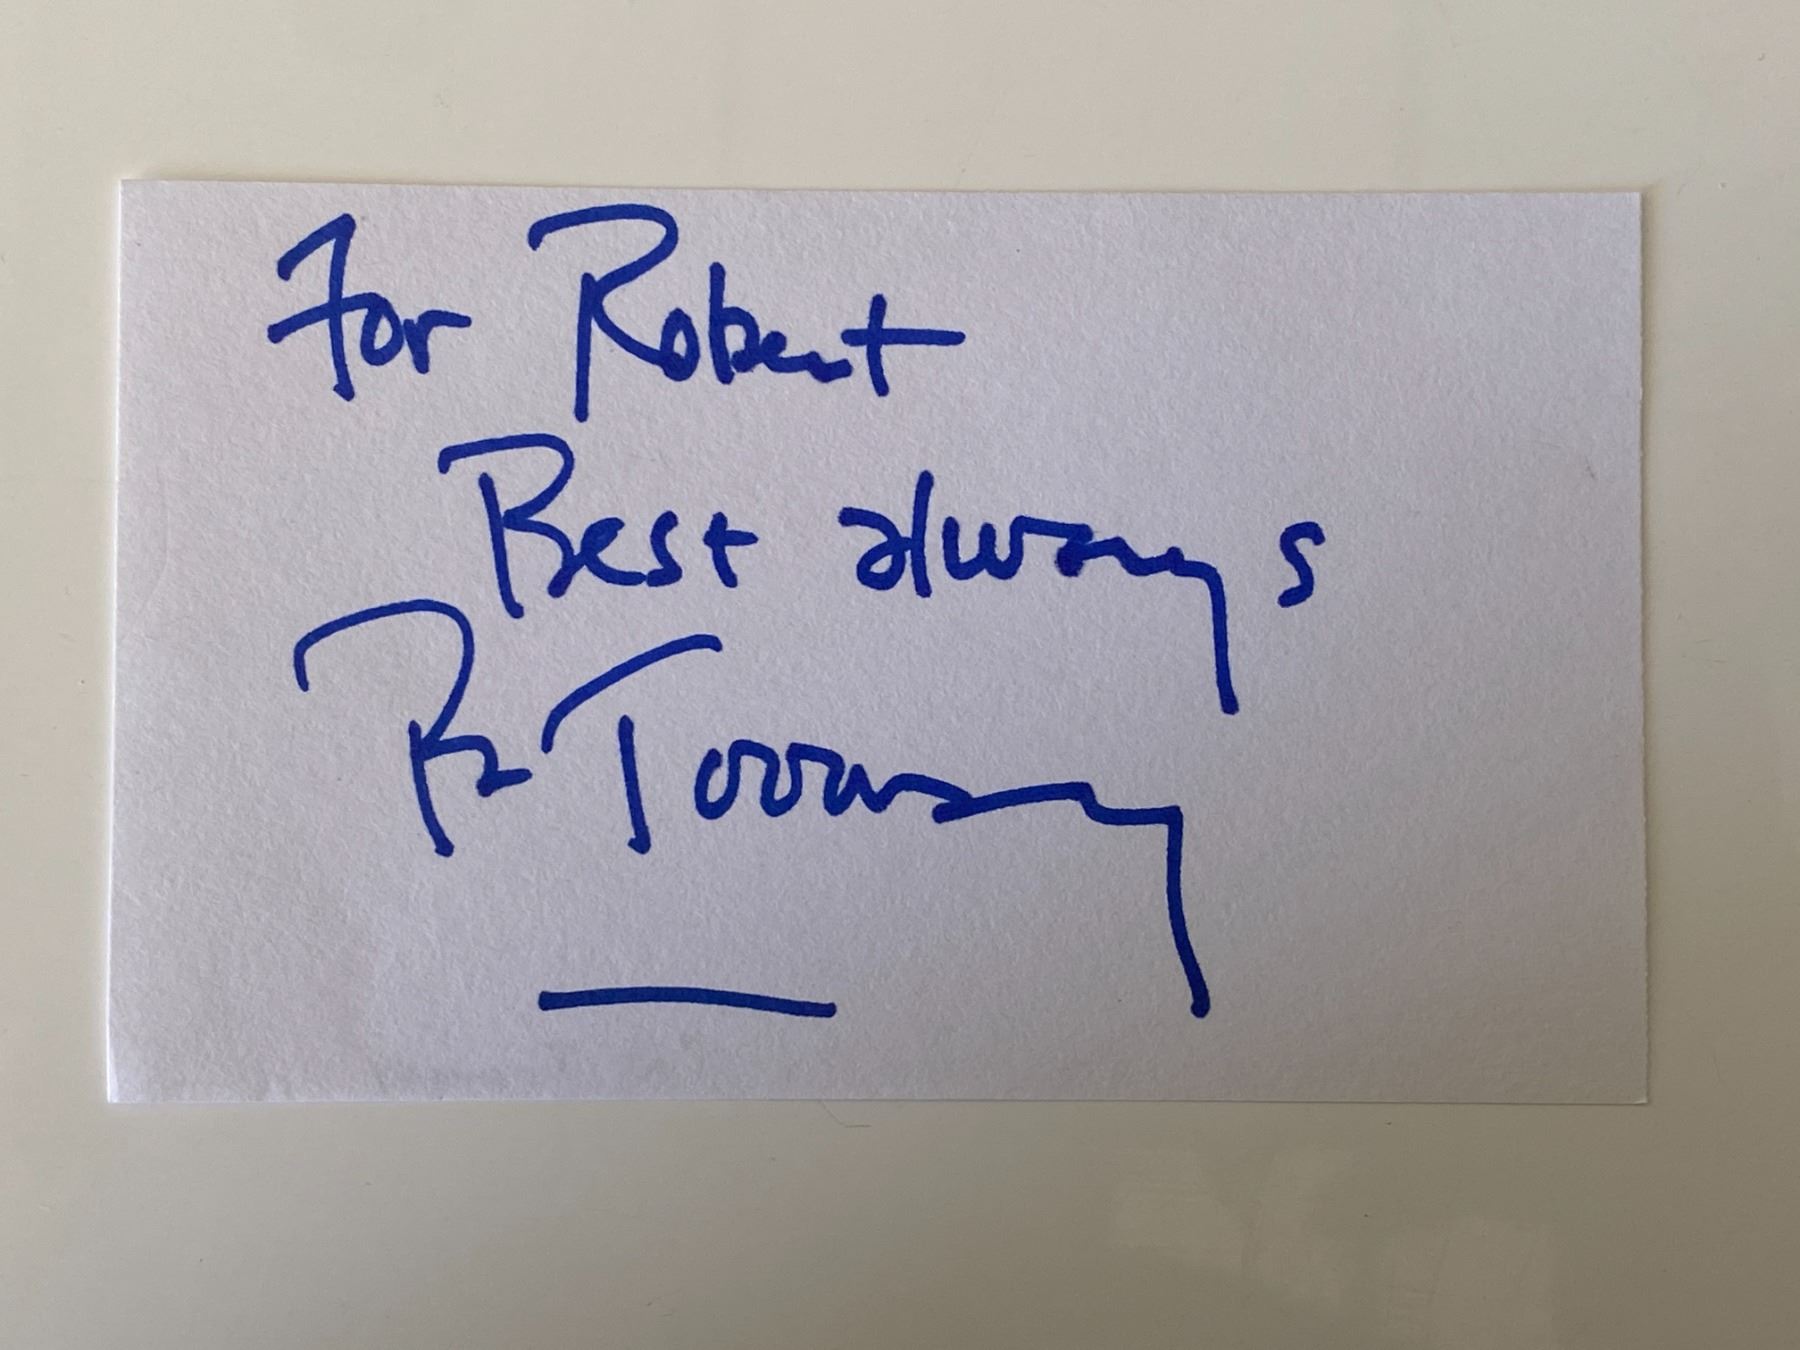 For Robert
Best always